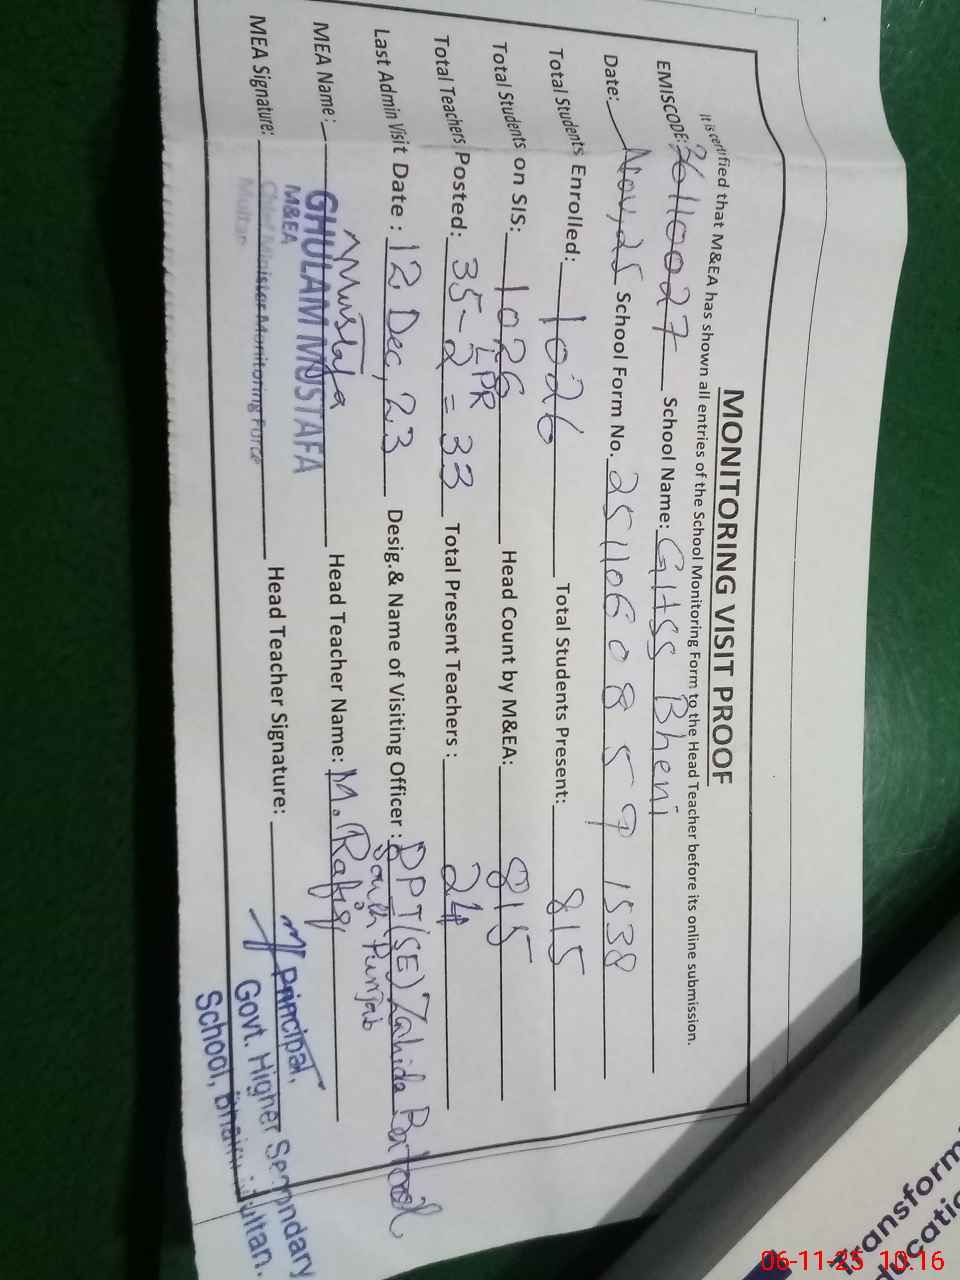 MONITORING VISIT PROOF
It is certified that M&EA has shown all entries of the School Monitoring Form to the Head Teacher before its online submission.
EMISCODE: 36110027 School Name: GHSS Bheni
Date: Nov, 25 School Form No. 25110608591538
Total Students Enrolled: 1026 Total Students Present: 815
Total Students on SIS: 1026 Head Count by M&EA: 815
LPR
Total Teachers Posted: 35-2=33 Total Present Teachers : 24
Last Admin Visit Date : 12 Dec, 23 Desig.& Name of Visiting Officer : DPI(SE) Zahida
South Punjab
MEA Name: Mustafa Head Teacher Name: M. Rafiq
GHULAM MUSTAFA
M&EA
MEA Signature: Head Teacher Signature:
Chief Minister Monitoring Force
Multan
Principal,
Govt. Higher Secondary
School, Multan.
Transform
ducatio
06-11-25 10:16